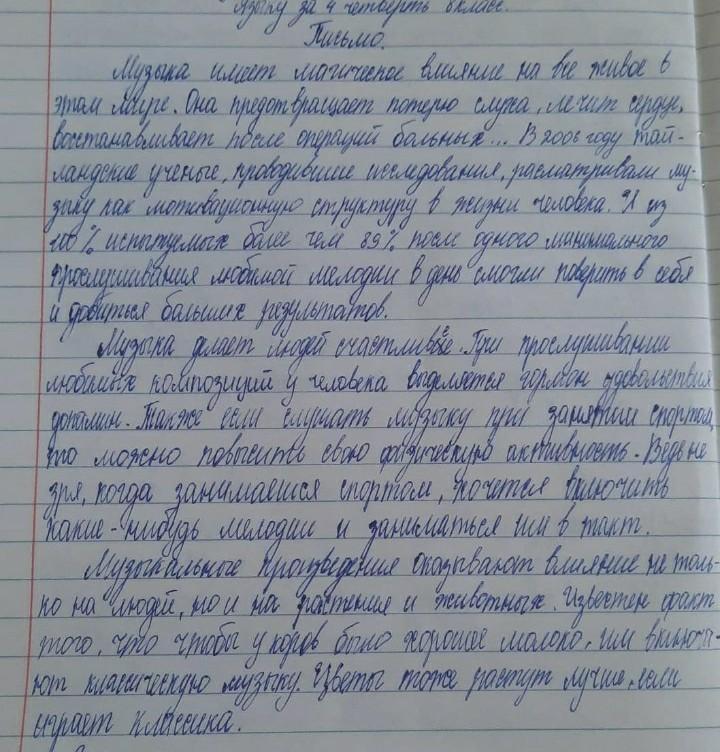 языку за 4 четверть 8 класс.
Письмо.
Музыка имеет магическое влияние на все живое в
этом мире. Она предотвращает потерю слуха, лечит сердце,
восстанавливает после операций больных... В 2006 году тай-
ландские ученые, проводившие исследования, расматривали му-
зыку как мотивационную структуру в жизни человека. И из
100% испытуемых более чем 89% после одного минимального
прослушивания любимой мелодии в день смогли поверить в себя
и добиться больших результатов.
Музыка делает людей счастливее. При прослушивании
любимых композиций у человека выделяется гормон удовольствия
допамин. Также если слушать музыку при занятии спортом,
то можно повысить свою физическую активность. Ведь не
зря, когда занимаешся спортом, хочется включить
какие-нибудь мелодии и заниматься им в такт.
Музыкальные произведения оказывают влияние не толь-
ко на людей, но и на растения и животных. Известен факт
того, что чтобы у коров было хорошее молоко, им включа-
ют классическую музыку. Цветы тоже растут лучше, если
играет классика.